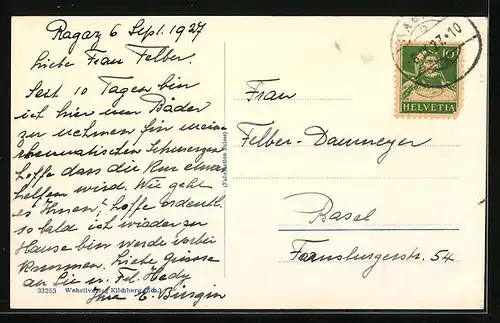 Ragaz 6 Sept. 1927
Liebe Frau Felber.
Seit 10 Tagen bin
ich hier um Bäder
zu nehmen für meine
rheumatischen Schmerzen
hoffe dass die Kur etwas
helfen wird. Wie geht
es Ihnen?, hoffe ordentl.
so bald ich wieder zu
Hause bin werde vorbei
kommen. Liebe Grüsse
an Sie u. Frl. Hedy
Ihre E. Bürgin
33253 Wehrliverlag Kilchberg (Zch.)
10
HELVETIA
Frau
Felber-Dannmeyer
Basel
Farnsburgerstr. 54